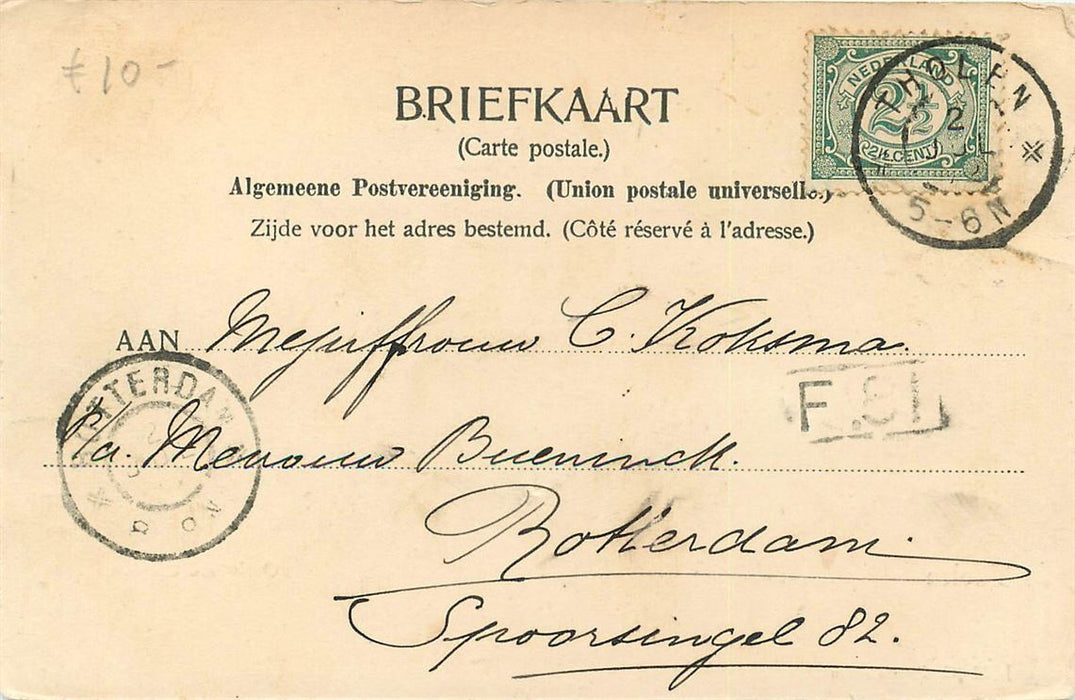 £10-
BRIEFKAART
(Carte postale.)
Algemeene Postvereeniging. (Union postale universelle.)
Zijde voor het adres bestemd. (Côté réservé à l'adresse.)
NEDERLAND
2½
(2½ CENT)
THOLEN
2
5-6N
AAN Mejuffrouw C. Koksma.
F.31
ROTTERDAM
p/a. Mevrouw Bueninck.
Rotterdam.
Spoorsingel 82.